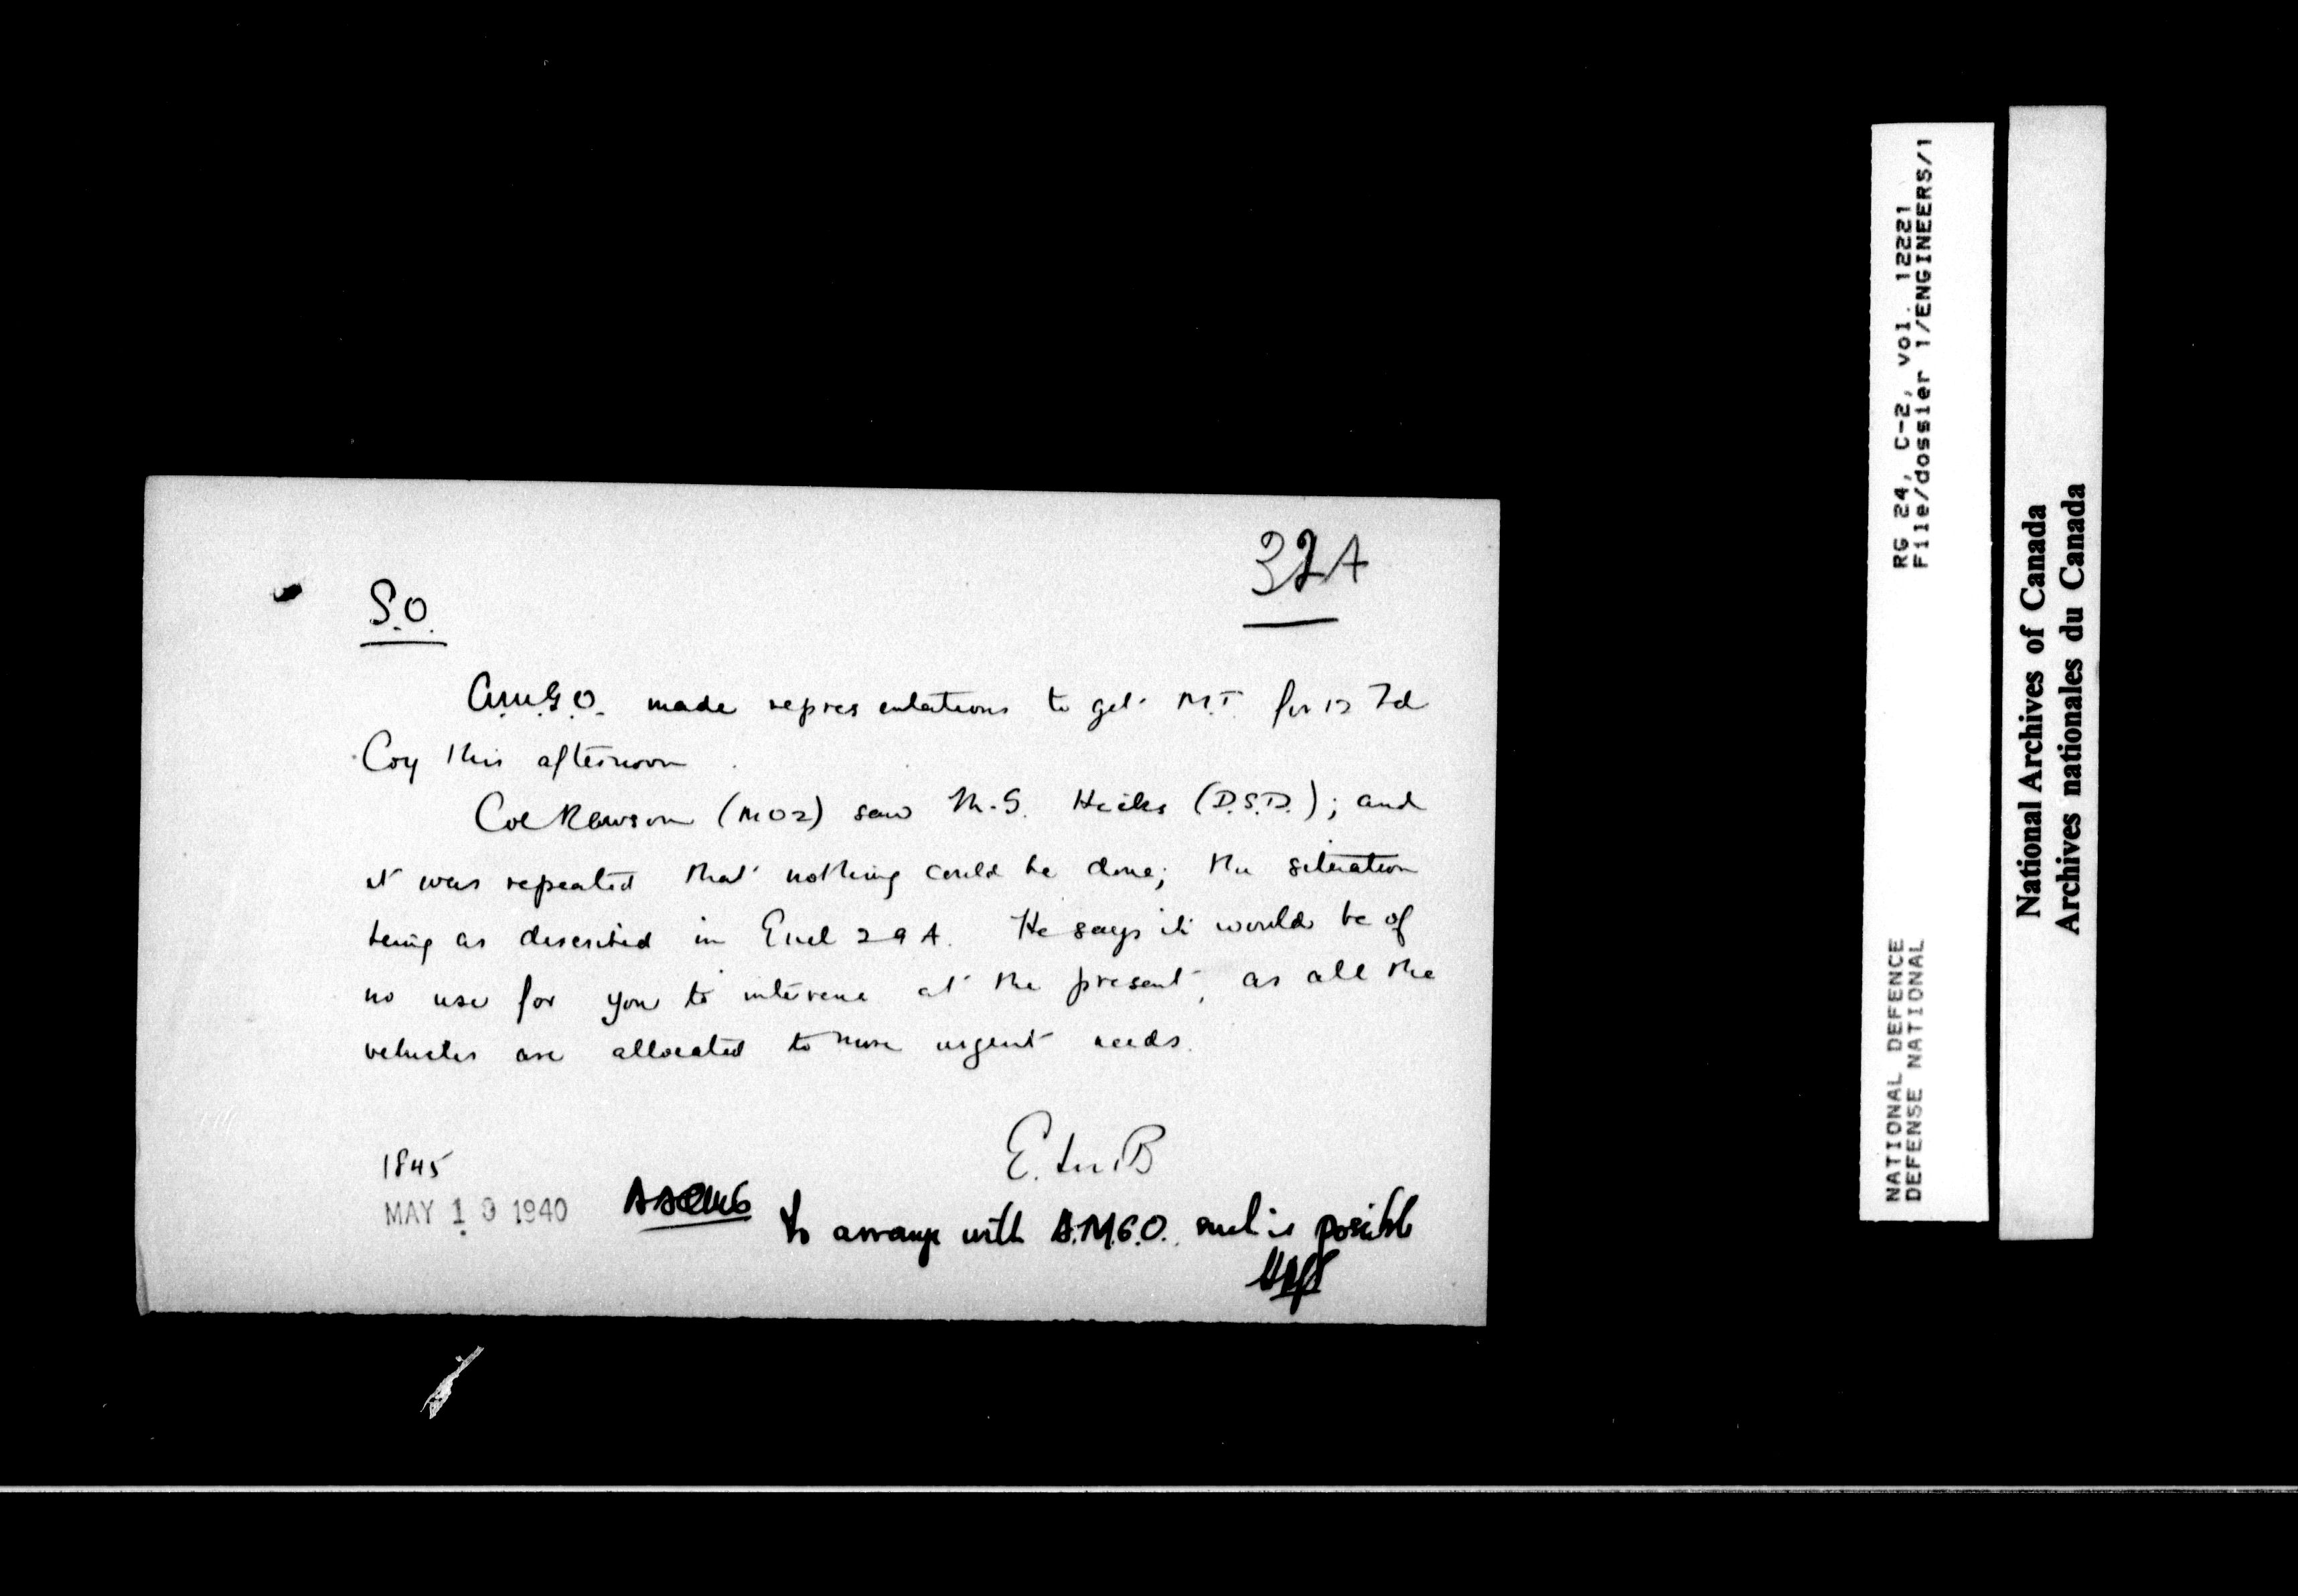 32A
S.O.
A.M.G.O. made representations to get M.T. for 12 Fd
Coy this afternoon.
Col Rawson (MO2) saw M.G. Hicks (D.S.D.); and
it was repeated that nothing could be done; the situation
being as described in Encl 29A. He says it would be of
no use for you to intervene at the present, as all the
vehicles are allocated to more urgent needs.
1845
MAY 10 1940
to arrange with A.M.G.O. possible
RG 24, C-2, vol. 12221
File/dossier 1/ENGINEERS/1
NATIONAL DEFENCE
DEFENSE NATIONAL
National Archives of Canada
Archives nationales du Canada